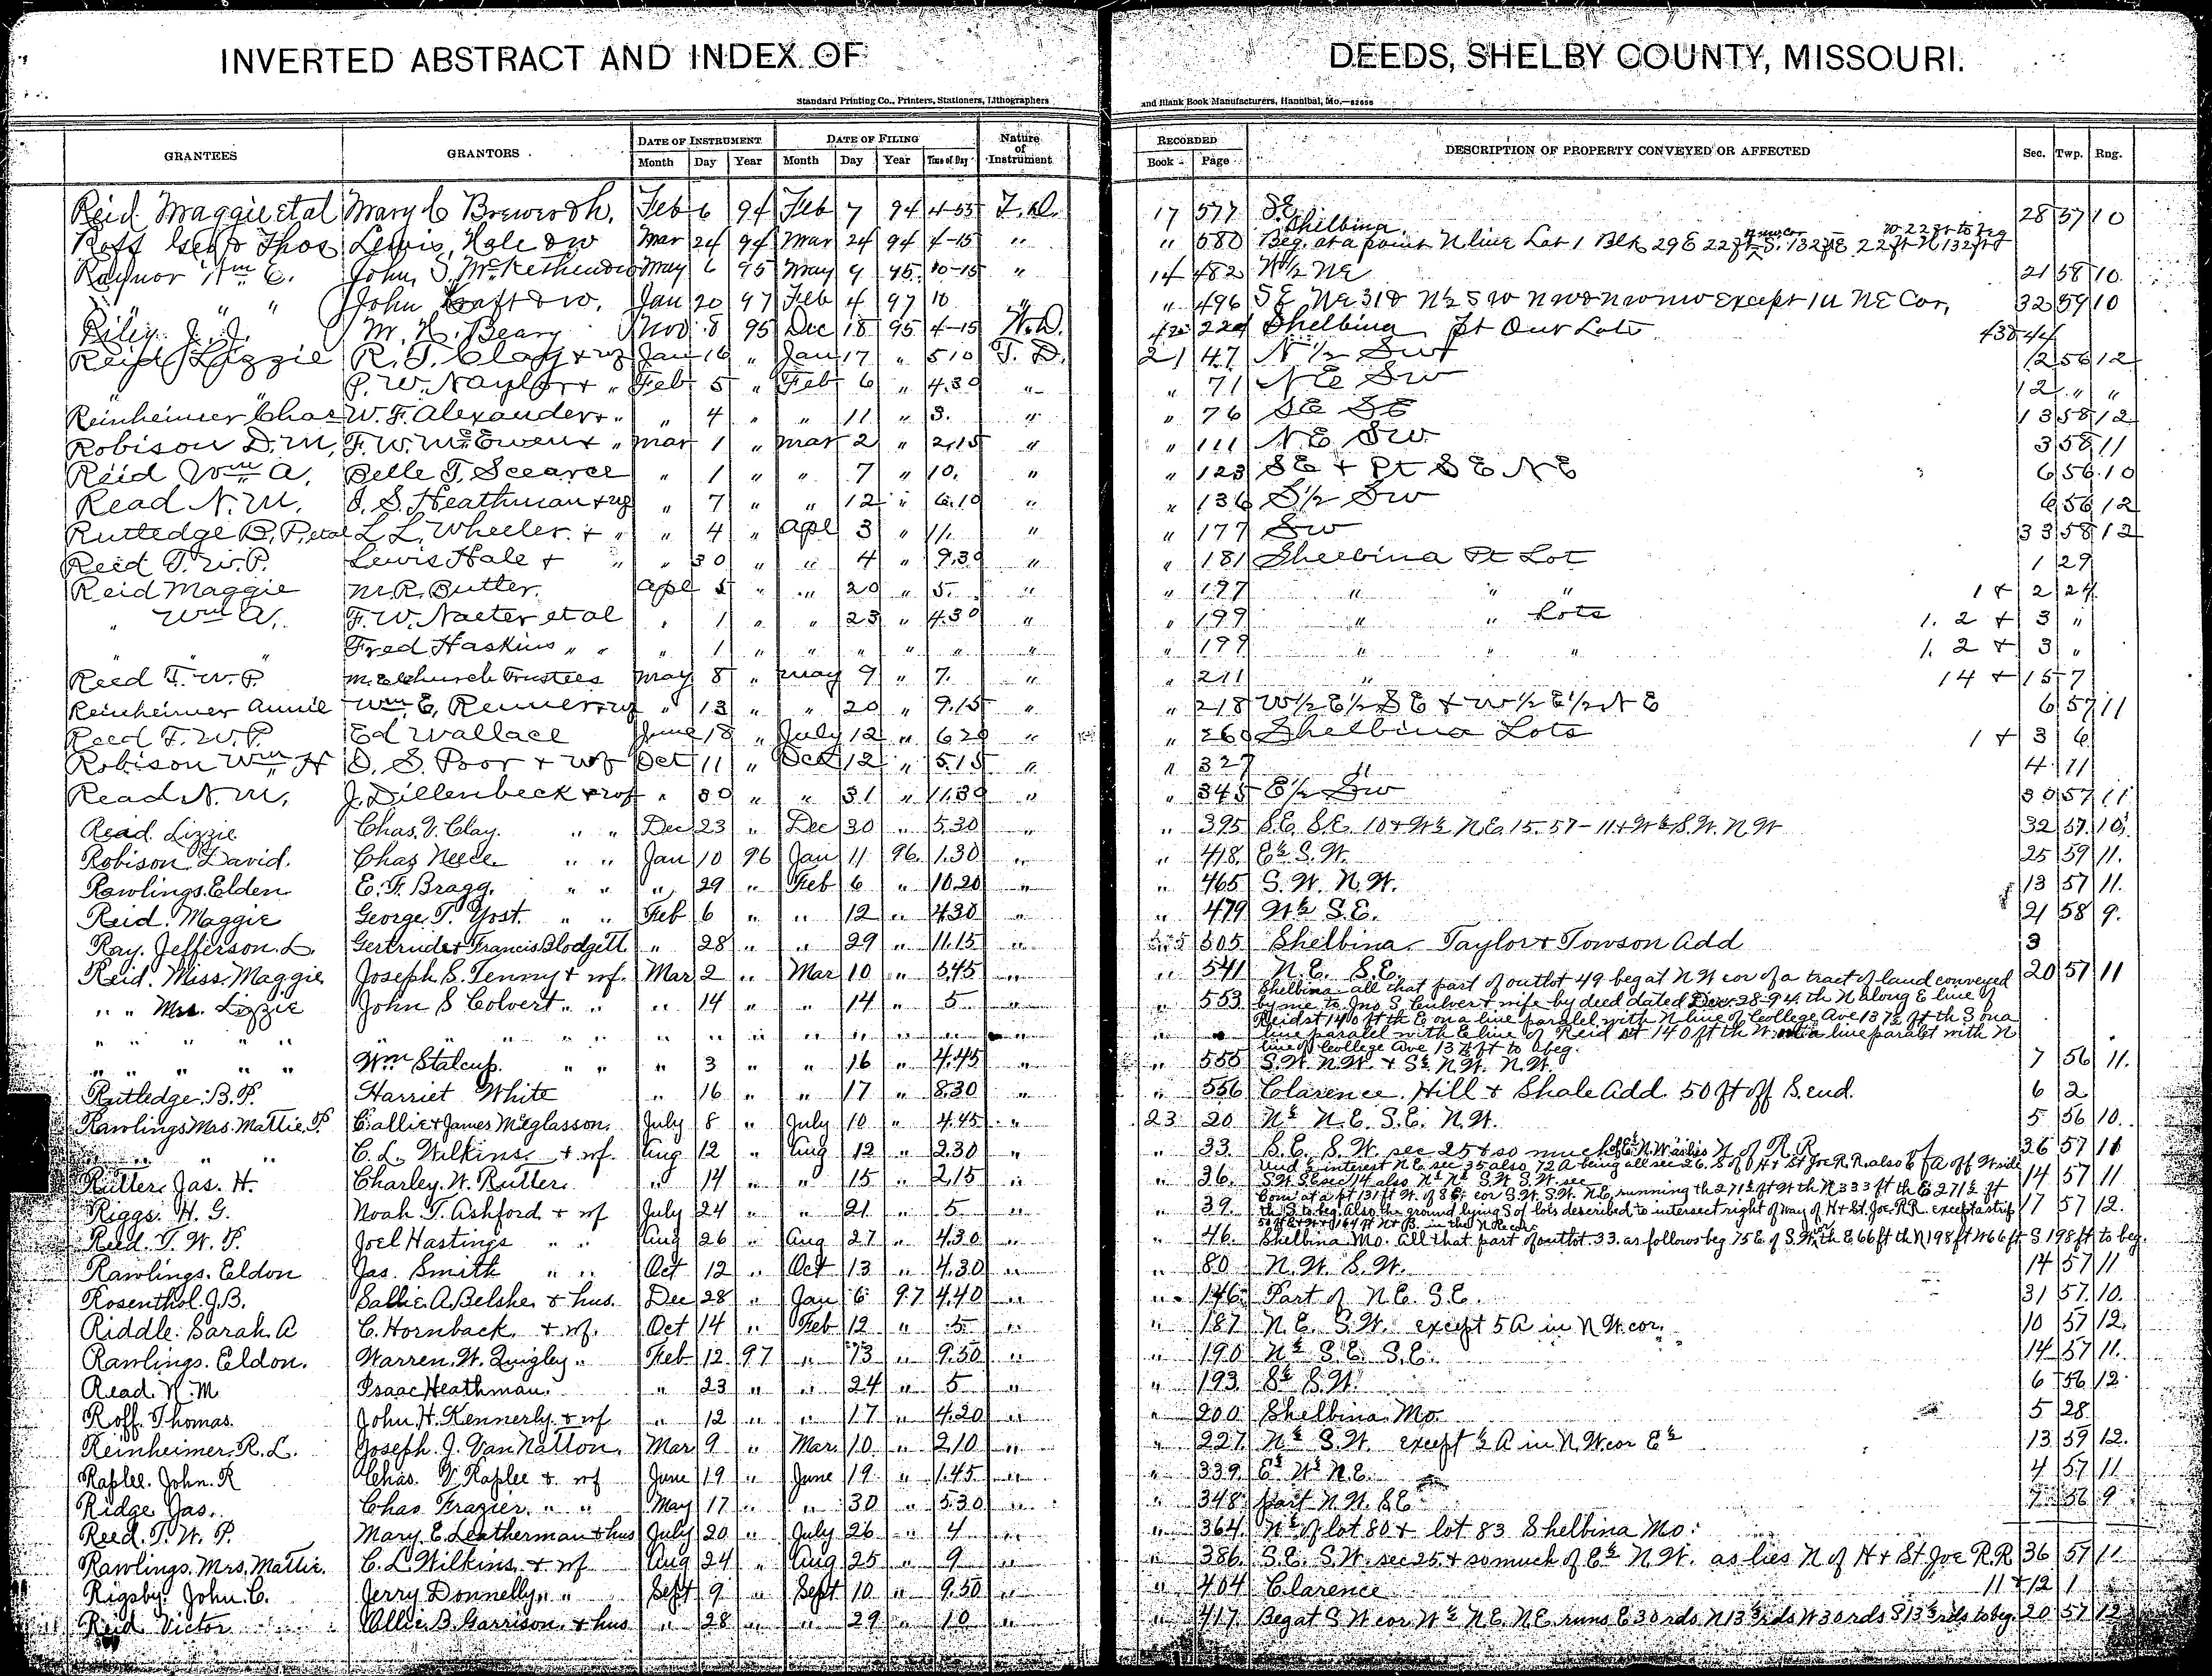 INVERTED ABSTRACT AND INDEX OF DEEDS, SHELBY COUNTY, MISSOURI.
Standard Printing Co., Printers, Stationers, Lithographers and Blank Book Manufacturers, Hannibal, Mo.
GRANTEES GRANTORS DATE OF INSTRUMENT DATE OF FILING Nature of Instrument RECORDED DESCRIPTION OF PROPERTY CONVEYED OR AFFECTED Sec. Twp. Rng.
Month Day Year Month Day Year Time of Day Book Page
Reid Maggie et al Mary C Feb 6 94 Feb 7 94 4-55 T.D. 17 577 S.E. 28 57 10
Roff Geo & Thos Lewis Hale & w Mar 24 94 Mar 24 94 4-15 " " 580 Shelbina Beg. at a point N line Lot 1 Blk 29 E 22 ft
Raynor Wm E. John S. May 6 95 May 9 95 10-15 " 14 482 W½ NE 21 58 10
" " " John & w. Jan 20 97 Feb 4 97 10 " " 496 SE NE 31 & N½ SW NW & NW NW except 1 NE Cor, 32 59 10
Riley J. J. M. Beary Nov 8 95 Dec 18 95 4-15 W.D. 224 Shelbina Pt Out Lots 44
Reid Lizzie R. T. Clay + wf Jan 16 " Jan 17 " 5 10 T. D. 21 47 N ½ Sw 12 56 12
" P. W. Naylor + " Feb 5 " Feb 6 " 4.30 " " 71 NE Sw 12 " "
Reinheimer Chas W. F. Alexander + " " 4 " " 11 " 3. " " 76 SE SE 13 58 12
Robison D. M, F. W. McEwen + " Mar 1 " Mar 2 " 2,15 " " 111 N.E. Sw. 3 58 11
Reid Wm A. Belle T. Scearce " 1 " " 7 " 10. " " 123 SE + Pt SE NE 6 56 10
Read N. M. I. S. Heathman + wf " 7 " " 12 " 6.10 " " 136 S½ Sw 6 56 12
Rutledge B. P. et al L. L. Wheeler + " " 4 " Apl 3 " 11. " " 177 Sw 33 58 12
Reed T. W. P. Lewis Hale + " " 30 " " 4 " 9.30 " " 181 Shelbina Pt Lot 1 29
Reid Maggie M. R. Butler. Apl 5 " " 20 " 5. " " 197 " " " 1 + 2 24
" Wm A. F. W. Naeter et al " 1 " " 23 " 4.30 " " 199 " " Lots 1. 2 + 3 "
" " Fred Haskins " " " 1 " " " " " " " 199 " " " 1. 2 + 3 "
Reed T. W. P. M. E church Trustees May 8 " May 9 " 7. " " 211 " 14 + 15 7
Reinheimer Annie Wm. E, Renner + wf " 13 " " 20 " 9.15 " " 218 W½ E½ SE + W½ E½ NE 6 57 11
Reed T. W. P. Ed Wallace June 18 " July 12 " 6 20 " " 260 Shelbina Lots 1 + 3 6
Robison Wm H O. S. Poor + wf Oct 11 " Oct 12 " 5.15 " " 327 " 4 11
Read N. M. J. Dillenbeck + wf " 30 " " 31 " 11.30 " " 345 E½ Sw 30 57 11
Read Lizzie Chas. V. Clay. " " Dec 23 " Dec 30 " 5.30 " " 395 S.E. S.E. 10 + W½ N.E. 15. 57-11 + W½ S.W. N.W 32 57 10
Robison David. Chas Neece " " Jan 10 96 Jan 11 96. 1.30 " " 418. E½ S.W. 25 59 11.
Rawlings. Elden E. F. Bragg. " " " 29 " Feb 6 " 10.20 " " 465 S. W. N. W. 13 57 11.
Reid. Maggie George. T. Yost. " " Feb 6 " " 12 " 4.30 " " 479 W½ S.E. 21 58 9.
Ray. Jefferson. L. Gertrude + Francis Blodgett " 28 " " 29 " 11.15 " 505 Shelbina Taylor + Towson Add 3
Reid. Miss. Maggie Joseph S. Tenny + wf. Mar 2 " Mar 10 " 3.45 " " 541 N.E. S.E. 20 57 11
" " Mrs. Lizzie John S Colvert " " " 14 " " 14 " 5 " " 553 Shelbina all that part of outlot 49 beg at N W cor of a tract of land conveyed
by me to Jno S. Culver + wife by deed dated Dec. 28-94. th N along E line of
Reid st 140 ft th E on a line paralel with N line of College Ave 137½ ft th S on a
" " " " " " " " " " " " " " line paralel with E line of Reid st 140 ft th W on a line paralel with N
line of College Ave 137½ ft to beg.
" " " " Wm Stalcup. " " " 3 " " 16 " 4.45 " " 555 S.W. N.W. + S½ N.W. N.W. 7 56 11.
Rutledge. B. P. Harriet White " 16 " " 17 " 8.30 " " 556 Clarence. Hill + Shale Add. 50 ft off S. end. 6 2
Rawlings Mrs. Mattie. P. Callie + James McGlasson. July 8 " July 10 " 4.45 " 23 20 N½ N.E. S.E. N.W. 5 56 10.
" " " C. L. Wilkins. + wf. Aug 12 " Aug 12 " 2.30 " " 33 S.E. S.W. sec 25 + so much of E½ N.W. as lies N of R.R. 36 57 11
Rutter. Jas. H. Charley. W. Rutter. " 14 " " 15 " 2.15 " " 36. Und ½ interest N E. sec 35 also 72 A being all sec 26. S of H + St Joe R. R. also 14 57 11
Riggs. H. G. Noah. T. Ashford + wf July 24 " " 21 " 5 " " 39. Com at a pt 131 ft W. of S E cor S.W. S.W. N.E. running th 271½ ft W th N 333 ft th E 271½ ft 17 57 12.
th S to beg. Also the ground lying S of lots described to intersect right of way of H + St. Joe. R.R. except a strip
Reed. T. W. P. Joel Hastings " " Aug 26 " Aug 27 " 4.30 " " 46. Shelbina Mo. All that part of outlot 33. as follows beg 75 E of S.W. th E 66 ft th N 198 ft W 66 ft S 198 ft to beg.
Rawlings. Eldon Jas. Smith " " Oct 12 " Oct 13 " 4.30 " " 80 N.W. S.W. 14 57 11
Rosenthol. J. B. Sallie. A. Belshe. + hus. Dec 28 " Jan 6 97 4.40 " " 146 Part of N.E. S.E. 31 57. 10.
Riddle. Sarah. A C. Hornback. + wf. Oct 14 " Feb 12 " 5 " " 187 N.E. S.W. except 5 A in N W cor. 10 57 12.
Rawlings. Eldon. Warren. W. Quigley " Feb 12 97 " 13 " 9.50 " " 190 N½ S.E. S.E. 14 57 11.
Read. N. M Isaac Heathman. " 23 " " 24 " 5 " " 193. S½ S.W. 6 56 12
Roff. Thomas. John. H. Kennerly. + wf " 12 " " 17 " 4.20 " " 200 Shelbina. Mo. 5 28
Reinheimer. R. L. Joseph. J. Van Natton. Mar 9 " Mar. 10 " 2.10 " " 227 N½ S.W. except ½ A in N. W cor E½ 13 59 12.
Raplee. John. R Chas. V. Raplee + wf June 19 " June 19 " 1.45 " " 339 E½ W½ N.E. 4 57 11
Ridge Jas. Chas Frazier. " " May 17 " " 30 " 5.30 " " 348 part N.W. SE 7 56 9
Reed. T. W. P. Mary. E. Leatherman + hus July 20 " July 26 " 4 " " 364 N½ of lot 80 + lot 83 Shelbina Mo. 
Rawlings. Mrs. Mattie. C. L Wilkins. + wf Aug 24 " Aug 25 " 9 " " 386 S.E. S.W. sec 25 + so much of E½ N.W. as lies N of H + St. Joe R.R 36 57 11
Rigsby. John. C. Jerry Donnelly " " Sept 9 " Sept 10 " 9.50 " " 404 Clarence 11 + 12 1
Reid Victor Ollie. B. Garrison. + hus " 28 " " 29 " 10 " " 417 Beg at S W cor W½ N.E. N.E. runs E 30 rds N 13½ rds W 30 rds S 13½ rds to beg. 20 57 12